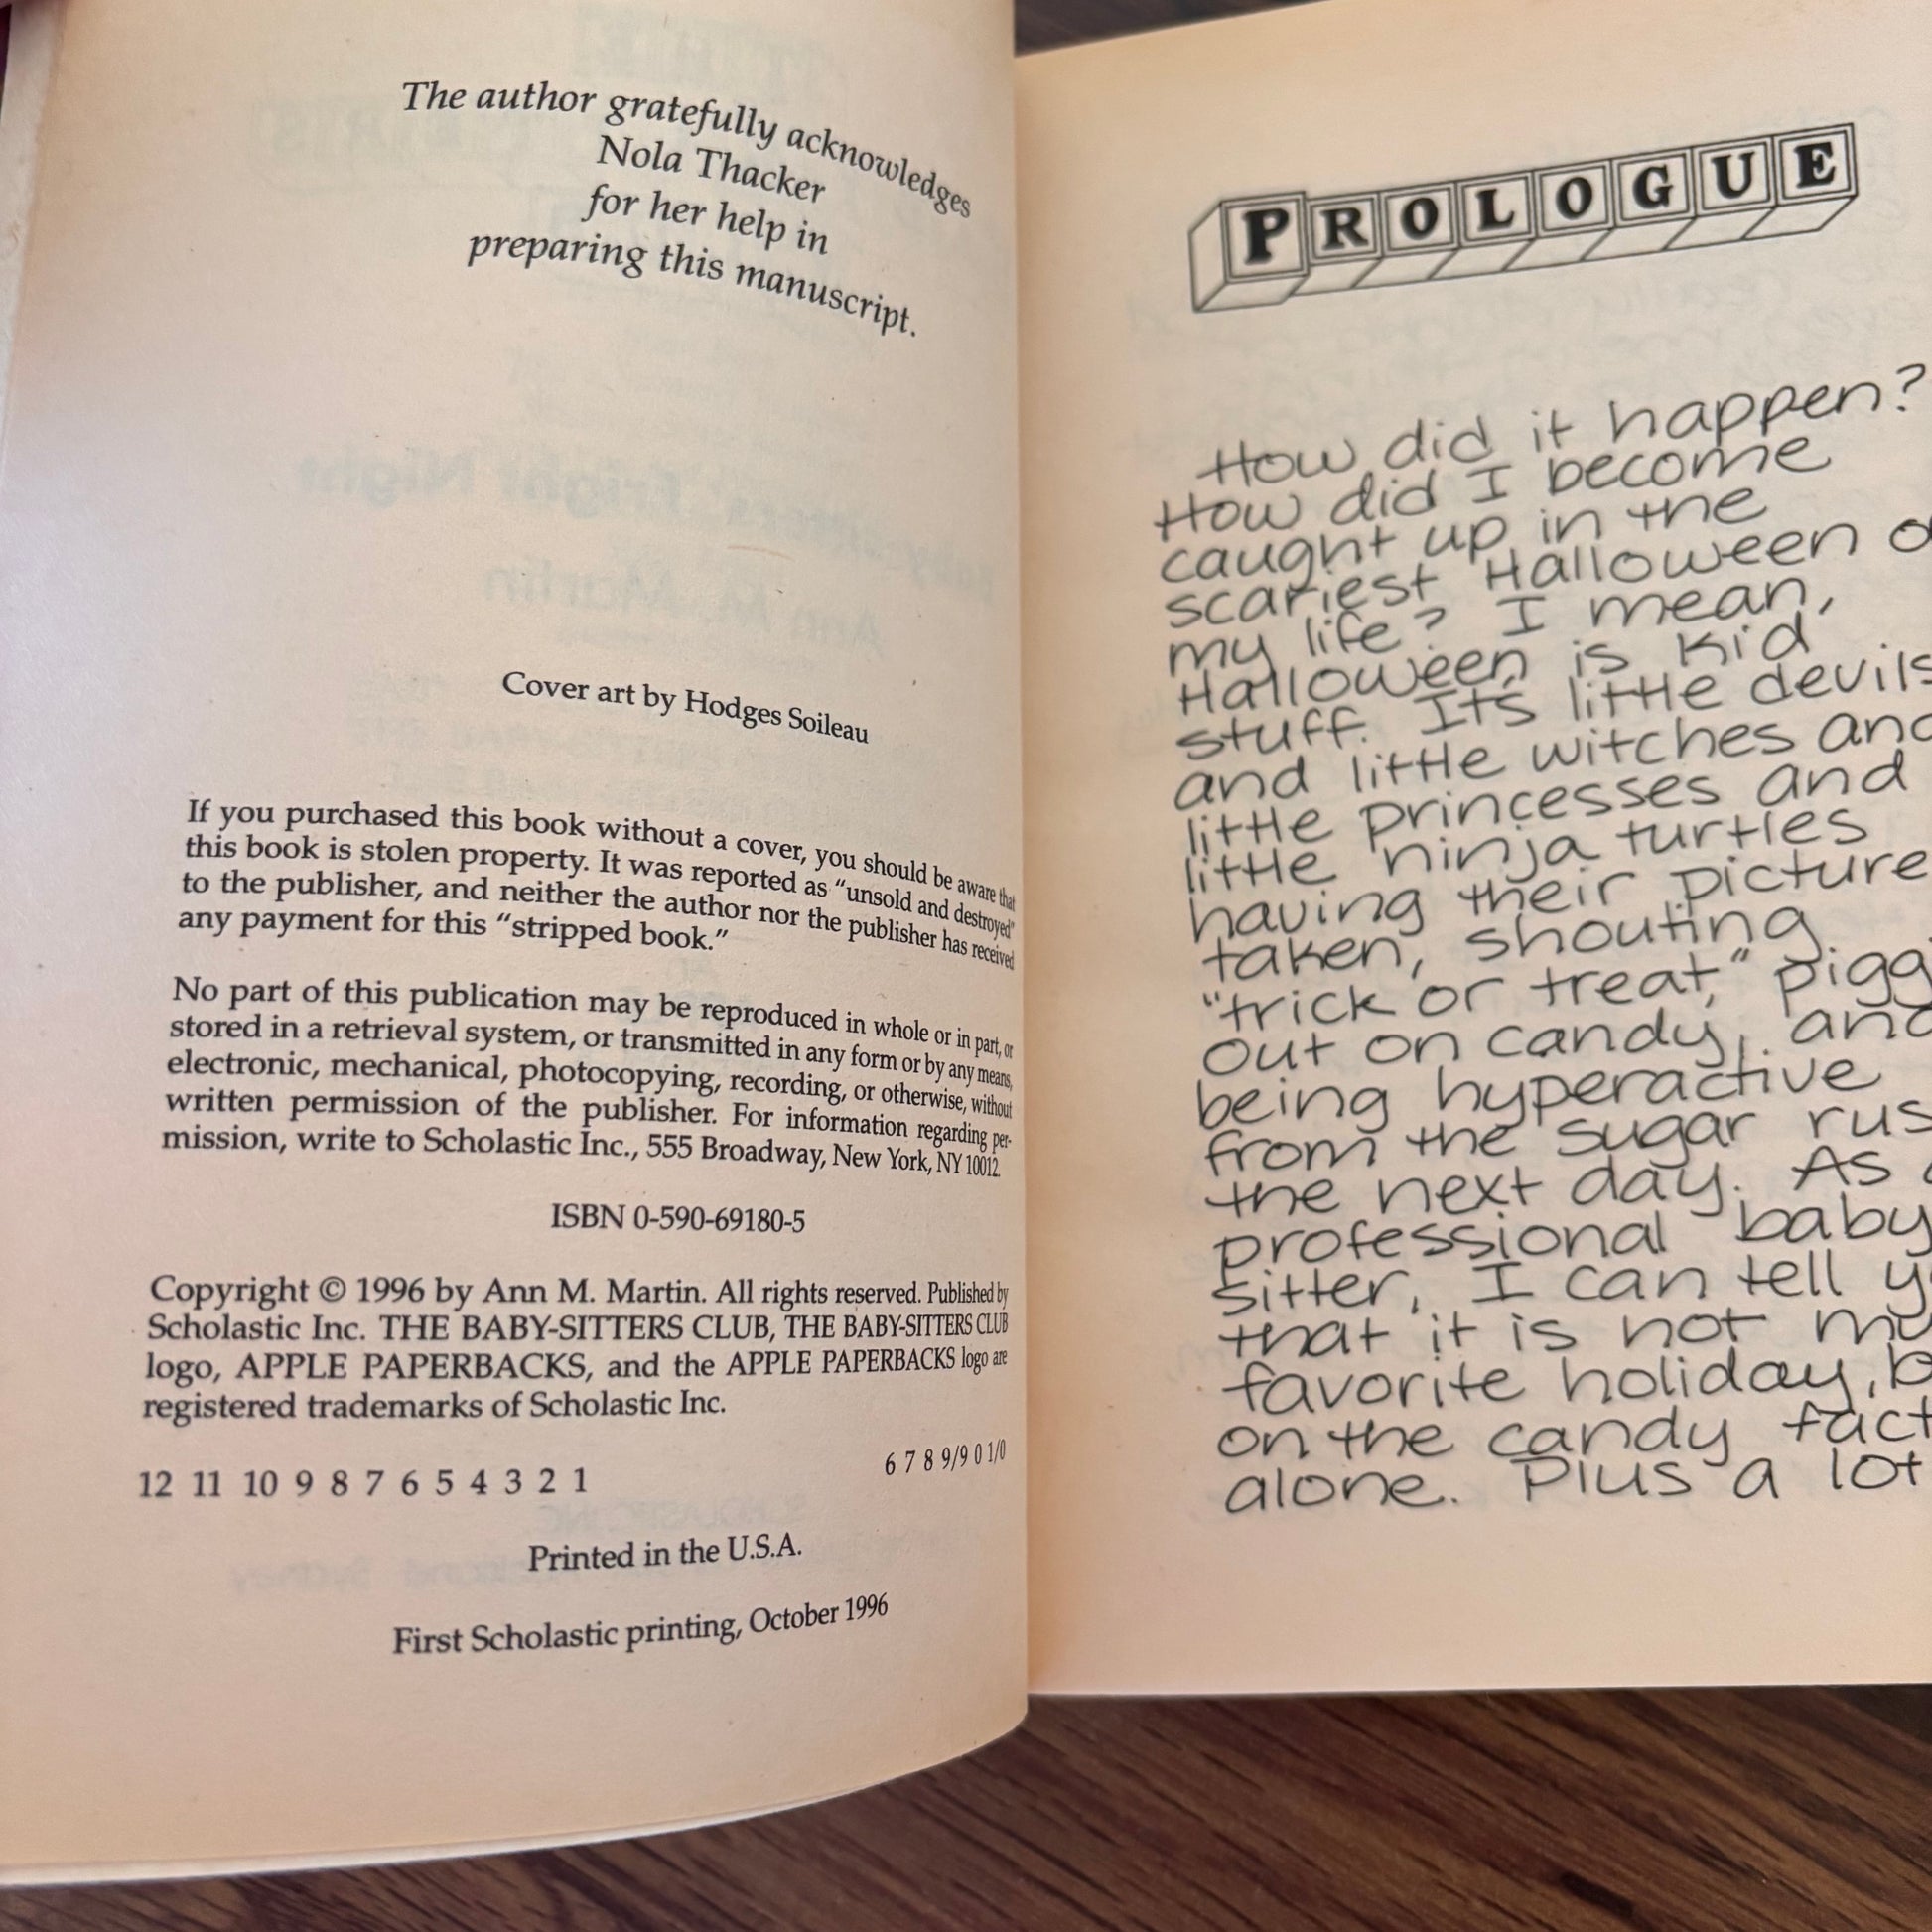 The author gratefully acknowledges
Nola Thacker
for her help in
preparing this manuscript.
Cover art by Hodges Soileau
If you purchased this book without a cover, you should be aware that
this book is stolen property. It was reported as “unsold and destroyed”
to the publisher, and neither the author nor the publisher has received
any payment for this “stripped book.”
No part of this publication may be reproduced in whole or in part, or
stored in a retrieval system, or transmitted in any form or by any means,
electronic, mechanical, photocopying, recording, or otherwise, without
written permission of the publisher. For information regarding per-
mission, write to Scholastic Inc., 555 Broadway, New York, NY 10012.
ISBN 0-590-69180-5
Copyright © 1996 by Ann M. Martin. All rights reserved. Published by
Scholastic Inc. THE BABY-SITTERS CLUB, THE BABY-SITTERS CLUB
logo, APPLE PAPERBACKS, and the APPLE PAPERBACKS logo are
registered trademarks of Scholastic Inc.
12 11 10 9 8 7 6 5 4 3 2 1 6 7 8 9/9 0 1/0
Printed in the U.S.A.
First Scholastic printing, October 1996
PROLOGUE
How did it happen?
How did I become
caught up in the
scariest Halloween
my life? I mean,
Halloween is kid
stuff. It's little devils
and little witches and
little princesses and
little ninja turtles
having their picture
taken, shouting
"trick or treat," pigg
out on candy, and
being hyperactive
from the sugar rus
the next day. As
professional baby
sitter, I can tell y
that it is not my
favorite holiday, b
on the candy fact
alone. Plus a lot